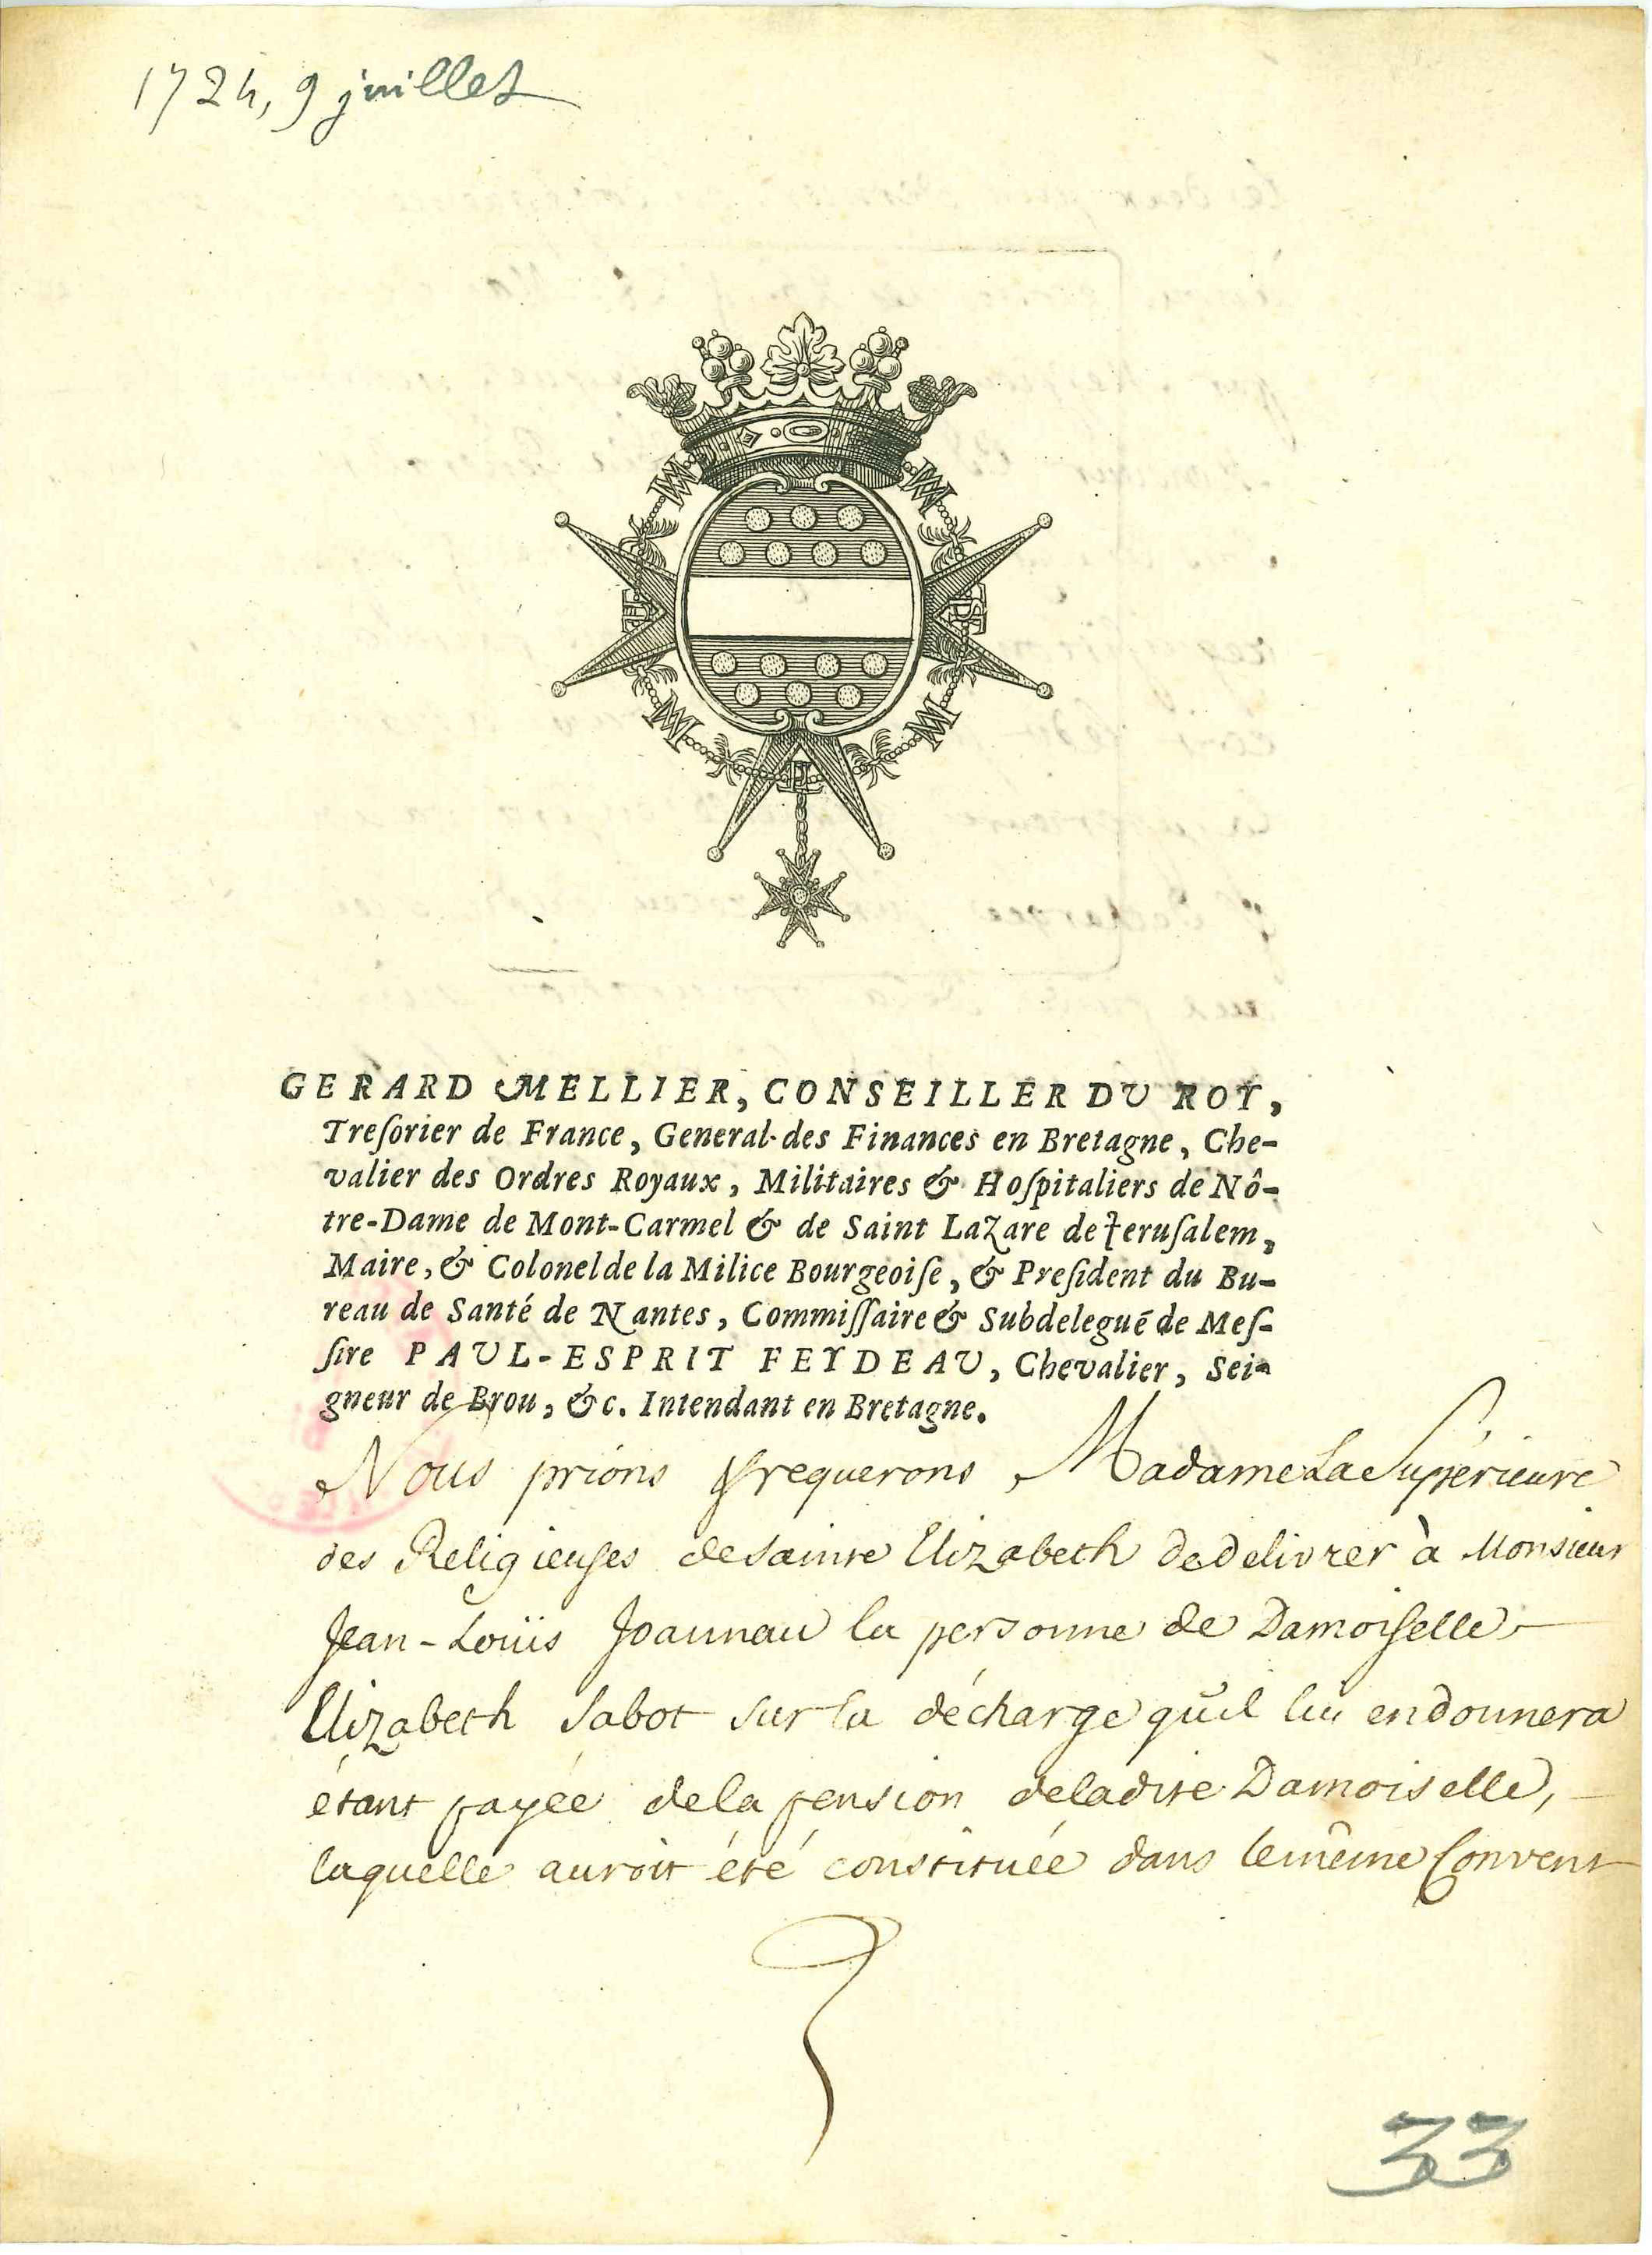 1724, 9 juillet
GERARD MELLIER, CONSEILLER DU ROY,
Treſorier de France, General des Finances en Bretagne, Che-
valier des Ordres Royaux, Militaires & Hoſpitaliers de Nô-
tre-Dame de Mont-Carmel & de Saint Lazare de Jeruſalem,
Maire, & Colonel de la Milice Bourgeoiſe, & Preſident du Bu-
reau de Santé de Nantes, Commiſſaire & Subdelegué de Meſ-
ſire PAUL-ESPRIT FEYDEAU, Chevalier, Sei-
gneur de Brou, &c. Intendant en Bretagne.
Nous prions & requerons, Madame La Supérieure
des Religieuses de sainte Elizabeth de delivrer à Monsieur
Jean-Loüis Joaunau la personne de Damoiselle
Elizabeth Sabot sur la décharge qu'il luy en donnera
étant payée de la pension de ladite Damoiselle,
laquelle auroit été constituée dans le même Convent
33